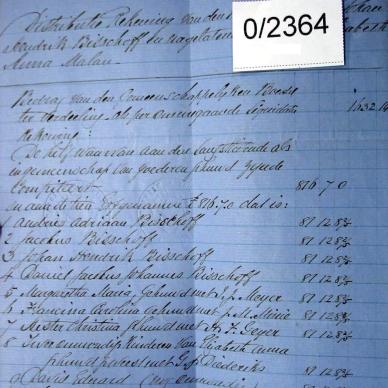 Distributie Rekening van den
0/2364
Hendrik Bisschoff en nagelatene
Anna Malan.
Bedrag van den Gemeenschappelyken Boedel
ter verdeeling als per voorengaande liquidatie 1632.14
Rekening:
De helft waarvan aan den langstlevende als
in gemeenschap van goederen gehuwd zynde
Competeert 816.7.0
en aan de tien Erfgenamen £816.7.0 dat is:
1 Andries Adriaan Bisschoff 81.12.8
2 Jacobus Bisschoff 81.12.8
3 Johan Hendrik Bisschoff 81.12.8
4 Daniel Jacobus Johannes Bisschoff 81.12.8
5 Margaretha Maria, Gehuwd met J. J. Meyer 81.12.8
6 Francina Carolina gehuwd met P. M. Minie 81.12.8
7 Hester Christina gehuwd met H. F. Geyer 81.12.8
8 Twee onmondige Kinderen van Elizabeth Anna
gehuwd geweest met G. J. Diederiks 81.12.8
9 David Edward